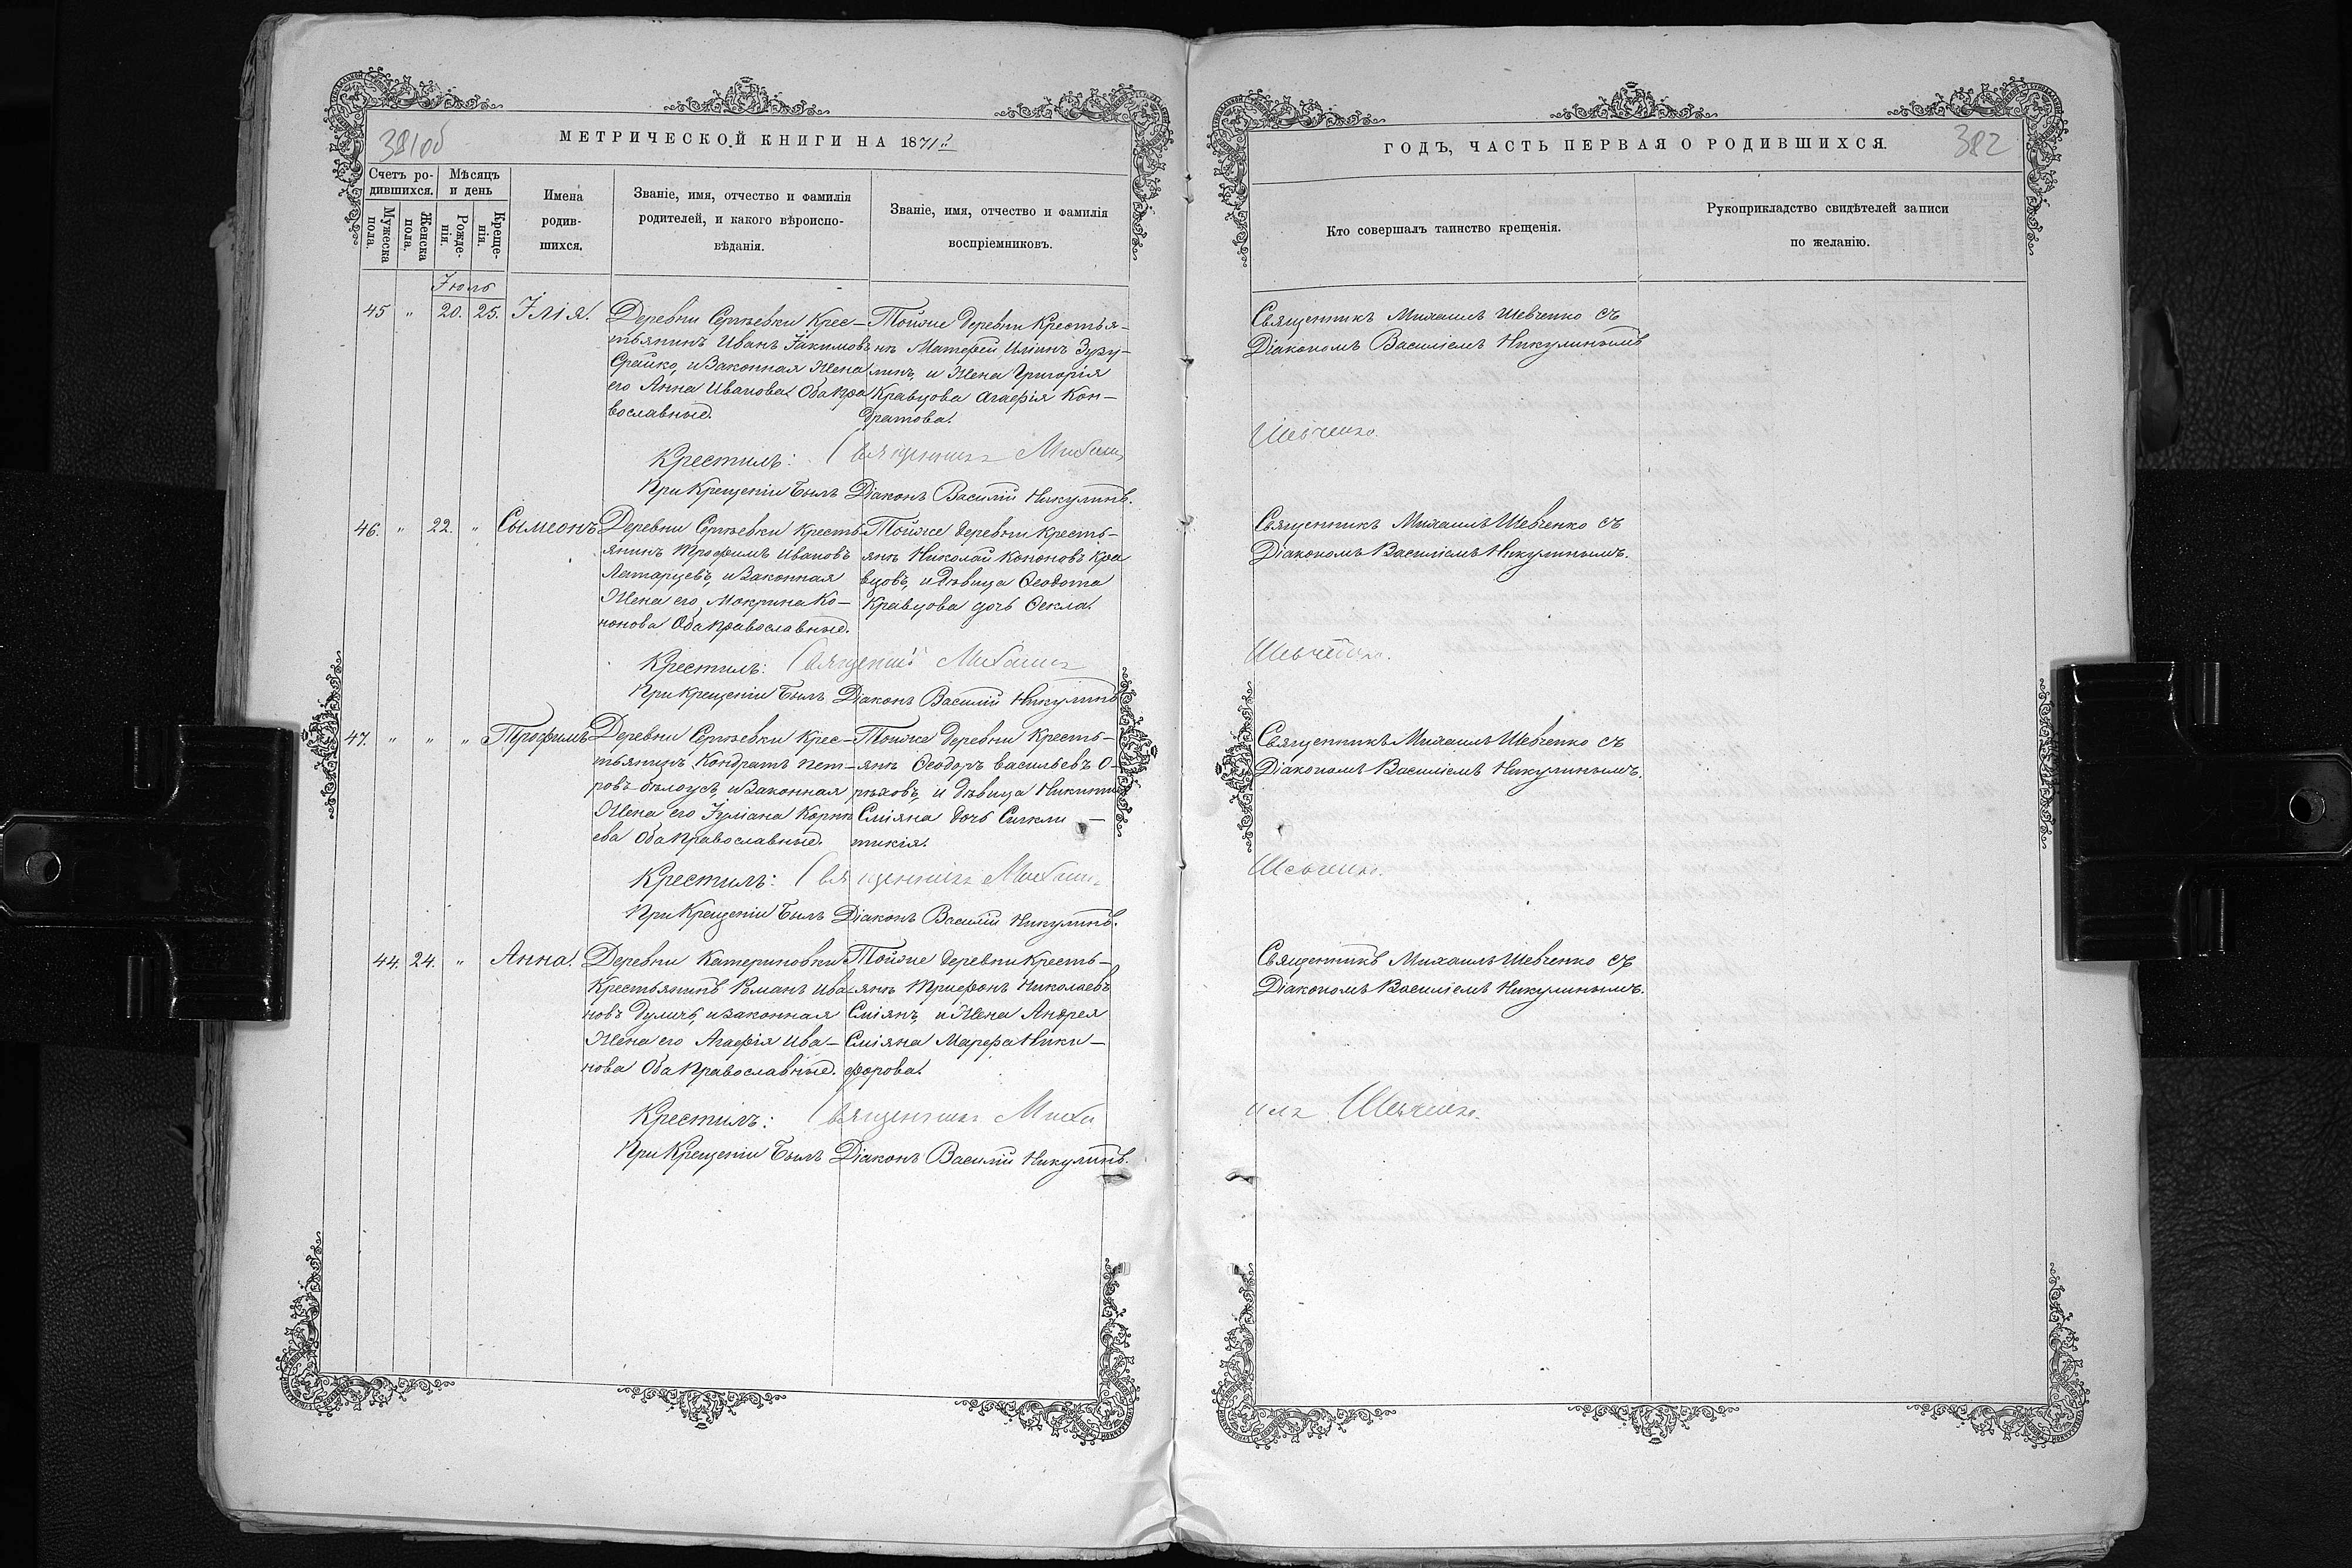 381об
МЕТРИЧЕСКОЙ КНИГИ НА 1871й
Счетъ ро-
дившихся.
Мѣсяцъ
и день
Мужеска
пола.
Женска
пола.
Рожде-
нія.
Креще-
нія.
Имена
родив-
шихся.
Званіе, имя, отчество и фамилія
родителей, и какого вѣроиспо-
вѣданія.
Званіе, имя, отчество и фамилія
воспріемниковъ.
Іюль
45 " 20. 25. Ілія.
Деревни Сергѣевки Крес-
тьянинъ Иванъ Іакимовъ
Срайко, и Законная Жена
его Анна Иванова Оба Пра
вославные.
Тойже деревни Крестья-
нѣ Матфей Илiинъ Зуру-
линъ, и Жена Григорія
Кравцова Агафія Кон-
дратова.
Крестилъ: Священникъ Михаилъ
При Крещеніи былъ Діаконъ Василій Никулинъ.
46. " 22. " Сымеонъ
Деревни Сергѣевки Кресть-
янинъ Трофимъ Ивановъ
Латарцевъ, и Законная
Жена его Мокрина Ко-
нонова Оба Православные.
Тойже деревни Кресть-
янѣ Николай Кононовъ Кра
вцовъ, и Дѣвица Ѳеодота
Кравцова дочь Ѳекла.
Крестилъ: Священникъ Михаилъ
При Крещеніи былъ Діаконъ Василій Никулинъ
47. " " " Трофимъ
Деревни Сергѣевки Крес-
тьянинъ Кондратъ Пет-
ровъ Бѣлоусъ, и Законная
Жена его Іуліана Корнѣ
ева Оба Православные.
Тойже деревни Кресть-
янѣ Ѳеодоръ Васильевъ О-
рѣховъ, и Дѣвица Никити
Сміяна дочь Сигкли-
тикія.
Крестилъ: Священникъ Михаилъ
При Крещеніи былъ Діаконъ Василій Никулинъ.
44. 24. " Анна.
Деревни Катериновки
Крестьянинъ Романъ Ива-
новъ Дуличъ, и законная
Жена его Агафія Ива-
нова Оба Православные.
Тойже деревни Кресть-
янѣ Трифонъ Николаевъ
Сміянъ, и Жена Андрея
Сміяна Марфа Ники-
форова.
Крестилъ: Священникъ Миха
При Крещеніи былъ Діаконъ Василій Никулинъ.
ГОДЪ, ЧАСТЬ ПЕРВАЯ О РОДИВШИХСЯ.
382
Кто совершалъ таинство крещенія.
Рукоприкладство свидѣтелей записи
по желанію.
Священникъ Михаилъ Шевченко съ
Діакономъ Василіемъ Никулинымъ
Шевченко.
Священникъ Михаилъ Шевченко съ
Діакономъ Василіемъ Никулинымъ.
Шевченко.
Священникъ Михаилъ Шевченко съ
Діакономъ Василіемъ Никулинымъ.
Шевченко.
Священникъ Михаилъ Шевченко съ
Діакономъ Василіемъ Никулинымъ.
илъ Шевченко.